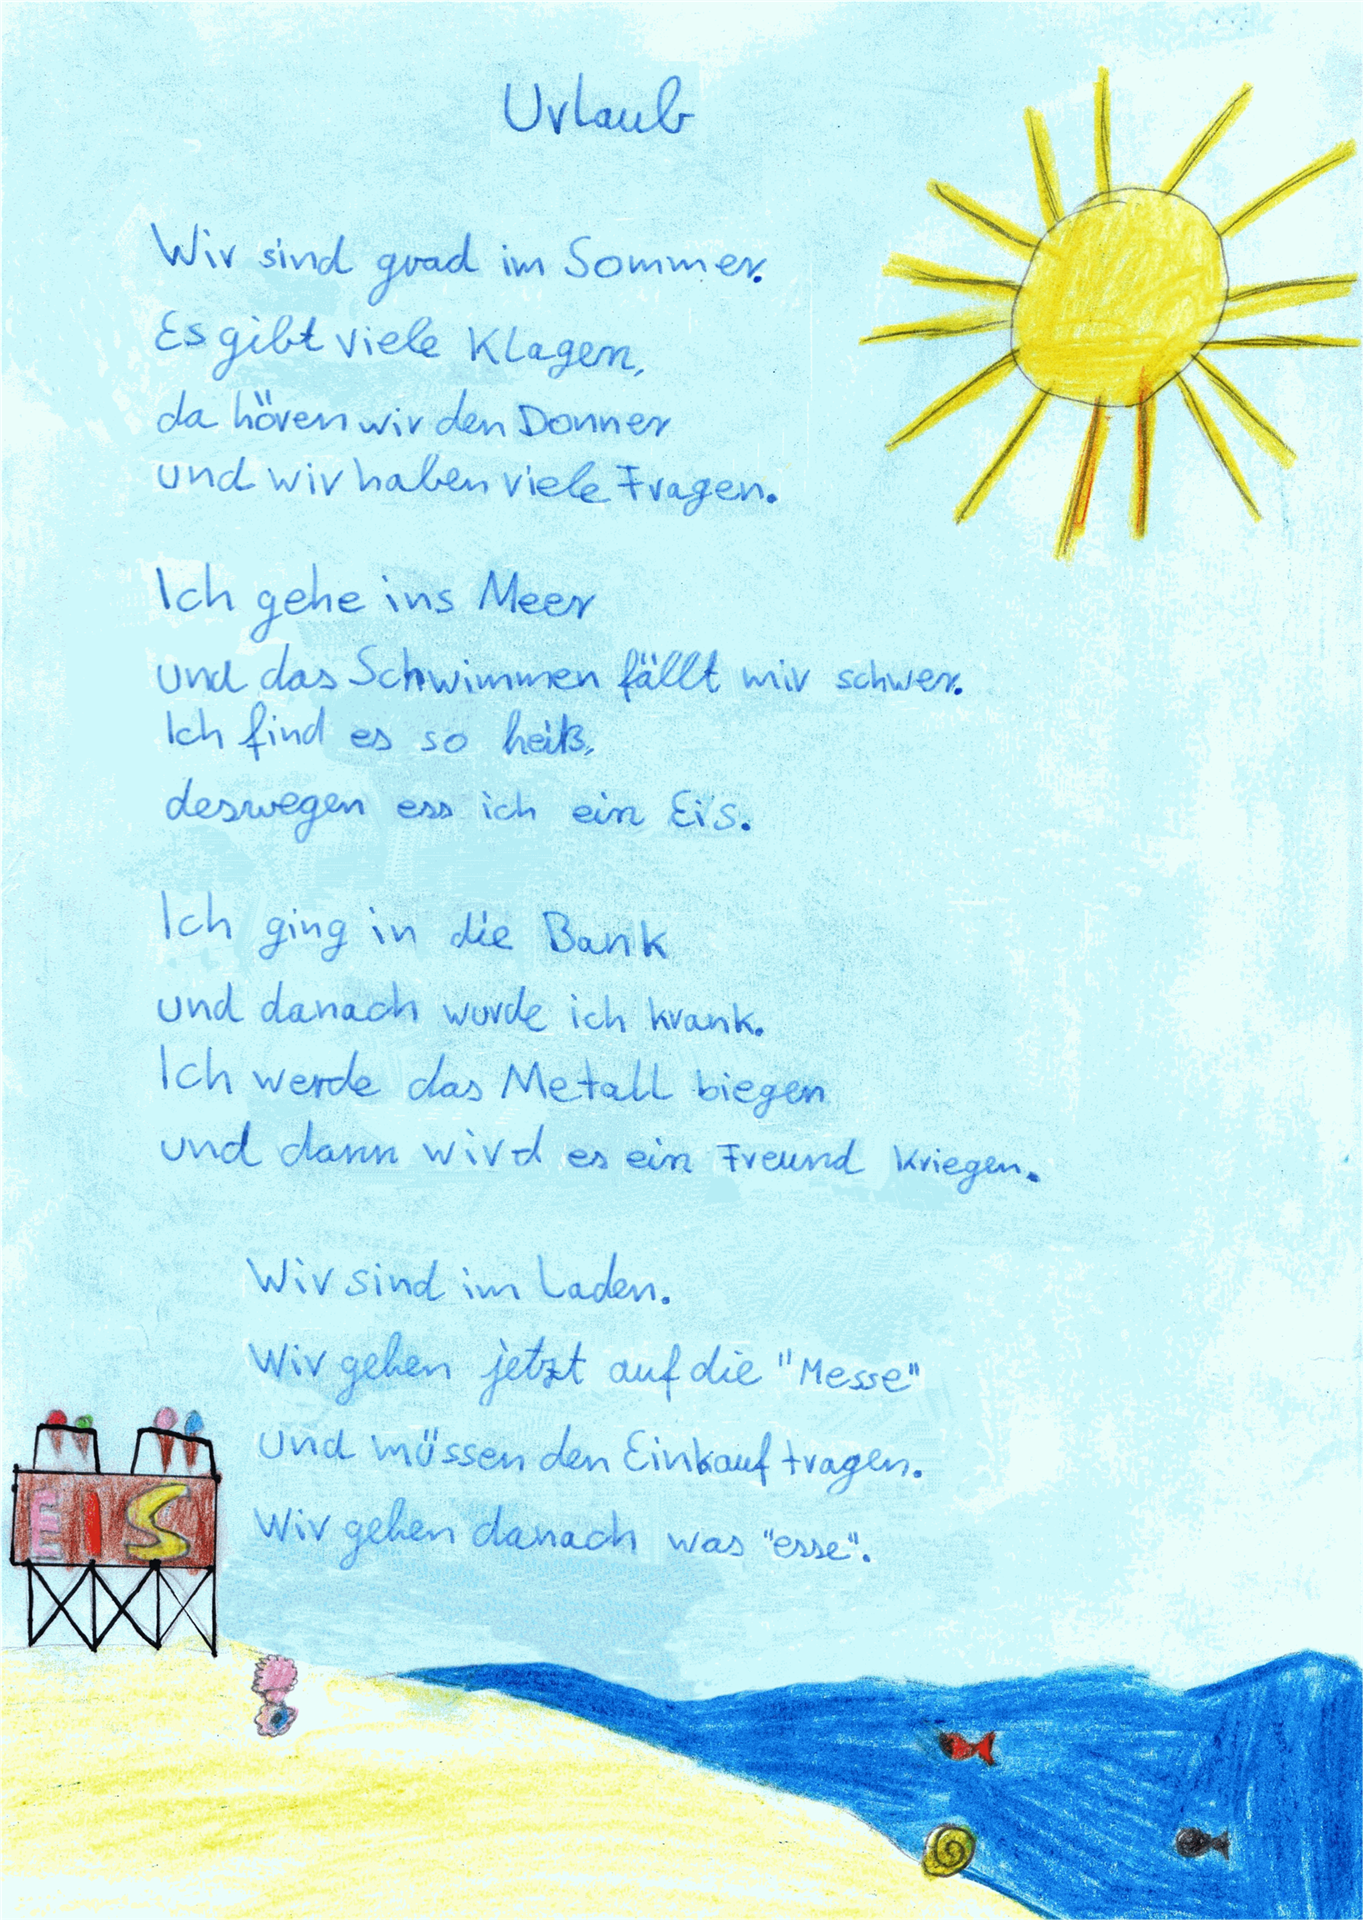 Urlaub
Wir sind grad im Sommer.
Es gibt viele Klagen,
da hören wir den Donner
und wir haben viele Fragen.
Ich gehe ins Meer
und das Schwimmen fällt mir schwer.
Ich find es so heiß,
deswegen ess ich ein Eis.
Ich ging in die Bank
und danach wurde ich krank.
Ich werde das Metall biegen
und dann wird es ein Freund kriegen.
Wir sind im Laden.
Wir gehen jetzt auf die "Messe"
und müssen den Einkauf tragen.
Wir gehen danach was "esse".
EIS